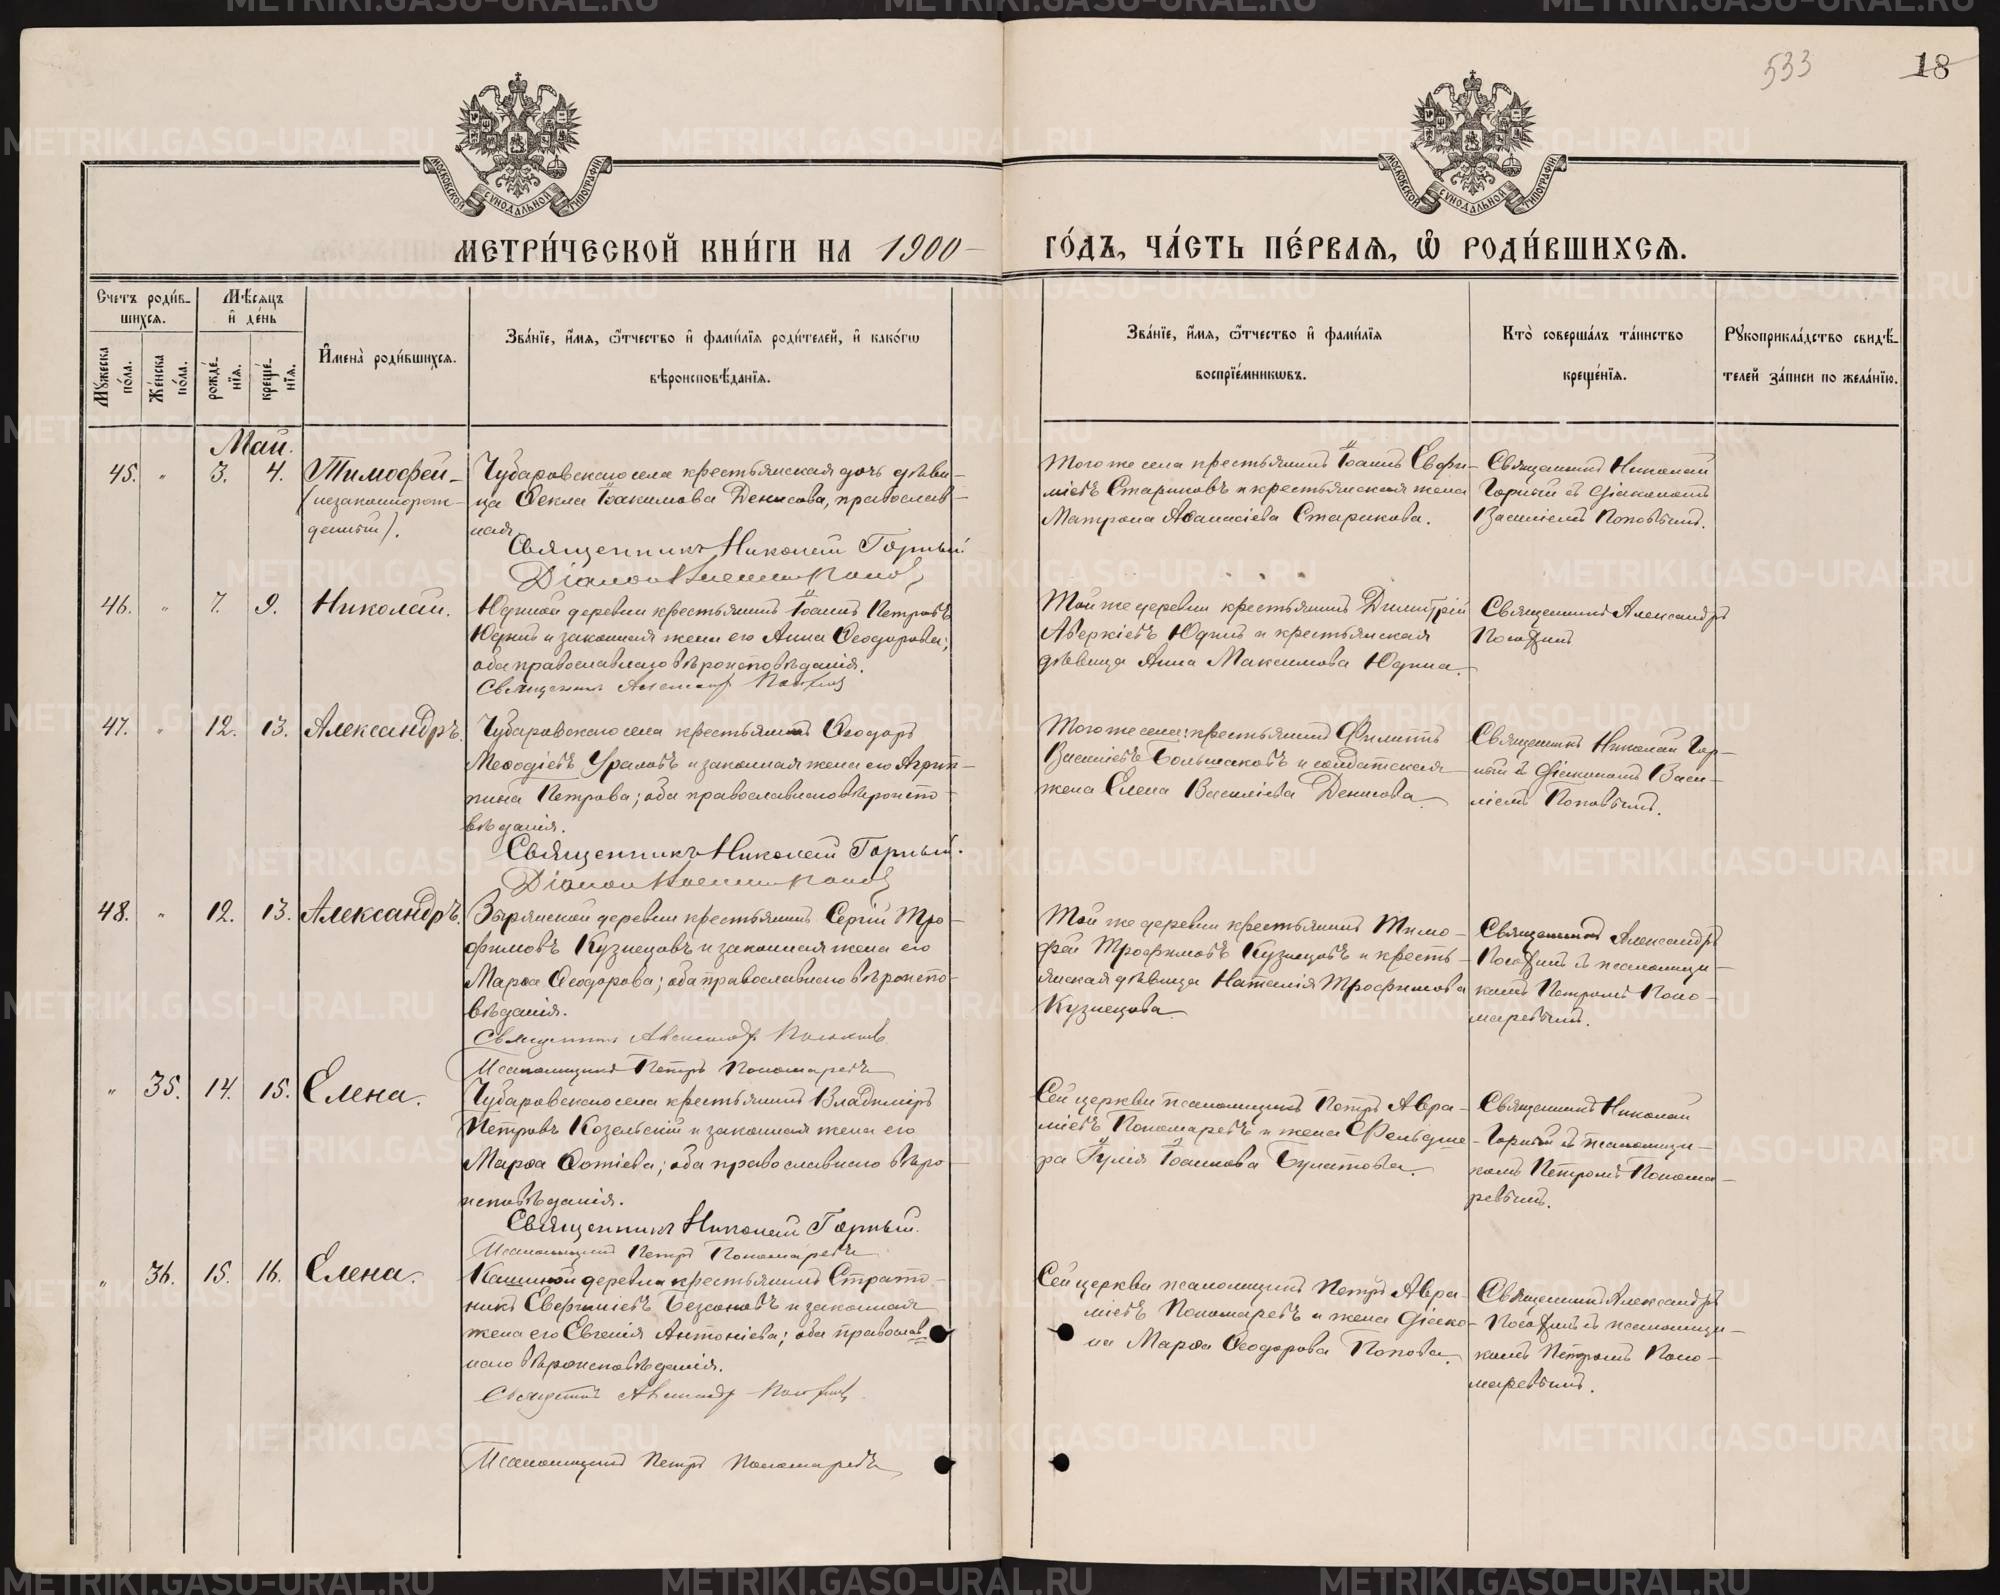 533
18
МОСКОВСКОЙ СУНОДАЛЬНОЙ ТИПОГРАФІИ
МОСКОВСКОЙ СУНОДАЛЬНОЙ ТИПОГРАФІИ
МЕТРИ́ЧЕСКОЙ КНИ́ГИ НА 1900
ГО́ДЪ, ЧА́СТЬ ПЕ́РВАЯ, Ѽ РОДИ́ВШИХСЯ.
Счетъ роди́в-
шихся.
Мѣсяцъ
и҆ де́нь
Мꙋжеска по́ла.
Же́нска по́ла.
рожде́нїѧ.
креще́нїѧ.
И҆мена̀ роди́вшихся.
Зва́нїе, и҆́мя, ѻ҆́тчество и҆ фами́лїѧ роди́телей, и҆ како́гѡ
вѣроисповѣ́данїѧ.
Зва́нїе, и҆́мя, ѻ҆́тчество и҆ фами́лїѧ
воспрїе́мникѡвъ.
Кто̀ соверша́лъ та́инство
креще́нїѧ.
Рꙋкоприкла́дство свидѣ́-
телей за́писи по жела́нїю.
Май.
45. " 3. 4. Тимофей
(незаконнорож-
денный).
Чубаровскаго села крестьянская дочь дѣви-
ца Ѳекла Іоакимова Денисова, православ-
ная
Священникъ Николай Горный
Діаконъ Василій Поповъ
Того же села крестьянинъ Іоаннъ Евфи-
міевъ Стариковъ и крестьянская жена
Матрона Аѳанасіева Старикова.
Священникъ Николай
Горный съ діакономъ
Василіемъ Поповымъ.
46. " 7. 9. Николай.
Юдиной деревни крестьянинъ Іоаннъ Петровъ
Юдинъ и законная жена его Анна Ѳеодорова;
оба православнаго вѣроисповѣданія.
Священникъ Александръ
Той же деревни крестьянинъ Димитрій
Аверкіевъ Юдинъ и крестьянская
дѣвица Анна Максимова Юдина.
Священникъ Александръ
47. " 12. 13. Александръ.
Чубаровскаго села крестьянинъ Ѳеодоръ
Меѳодіевъ Ураловъ и законная жена его Агрип-
пина Петрова; оба православнаго вѣроиспо-
вѣданія.
Священникъ Николай Горный.
Діаконъ Василій Поповъ
Того же села крестьянинъ Филиппъ
Василіевъ Большаковъ и солдатская
жена Елена Василіева Денисова.
Священникъ Николай Гор-
ный съ діакономъ Васи-
ліемъ Поповымъ.
48. " 12. 13. Александръ.
Зырянской деревни крестьянинъ Сергій Тро-
фимовъ Кузнецовъ и законная жена его
Марѳа Ѳеодорова; оба православнаго вѣроиспо-
вѣданія.
Священникъ Александръ
Псаломщикъ Петръ Пономаревъ
Той же деревни крестьянинъ Тимо-
фей Трофимовъ Кузнецовъ и кресть-
янская дѣвица Наталія Трофимова
Кузнецова.
Священникъ Александръ
съ псаломщи-
комъ Петромъ Поно-
маревымъ.
" 35. 14. 15. Елена.
Чубаровскаго села крестьянинъ Владиміръ
Петровъ Козельскій и законная жена его
Марѳа Фотіева; оба православнаго вѣро-
исповѣданія.
Священникъ Николай Горный.
Псаломщикъ Петръ Пономаревъ
Сей церкви псаломщикъ Петръ Авра-
міевъ Пономаревъ и жена фельдше-
ра Іулія Іоаннова Булатова.
Священникъ Николай
Горный съ псаломщи-
комъ Петромъ Понома-
ревымъ.
" 36. 15. 16. Елена.
Кашиной деревни крестьянинъ Страто-
никъ Безсоновъ и законная
жена его Евгенія Антоніева; оба православ-
наго вѣроисповѣданія.
Священникъ Александръ
Псаломщикъ Петръ Пономаревъ
Сей церкви псаломщикъ Петръ Авра-
міевъ Пономаревъ и жена діако-
на Марѳа Ѳеодорова Попова.
Священникъ Александръ
съ псаломщи-
комъ Петромъ Поно-
маревымъ.
METRIKI.GASO-URAL.RU